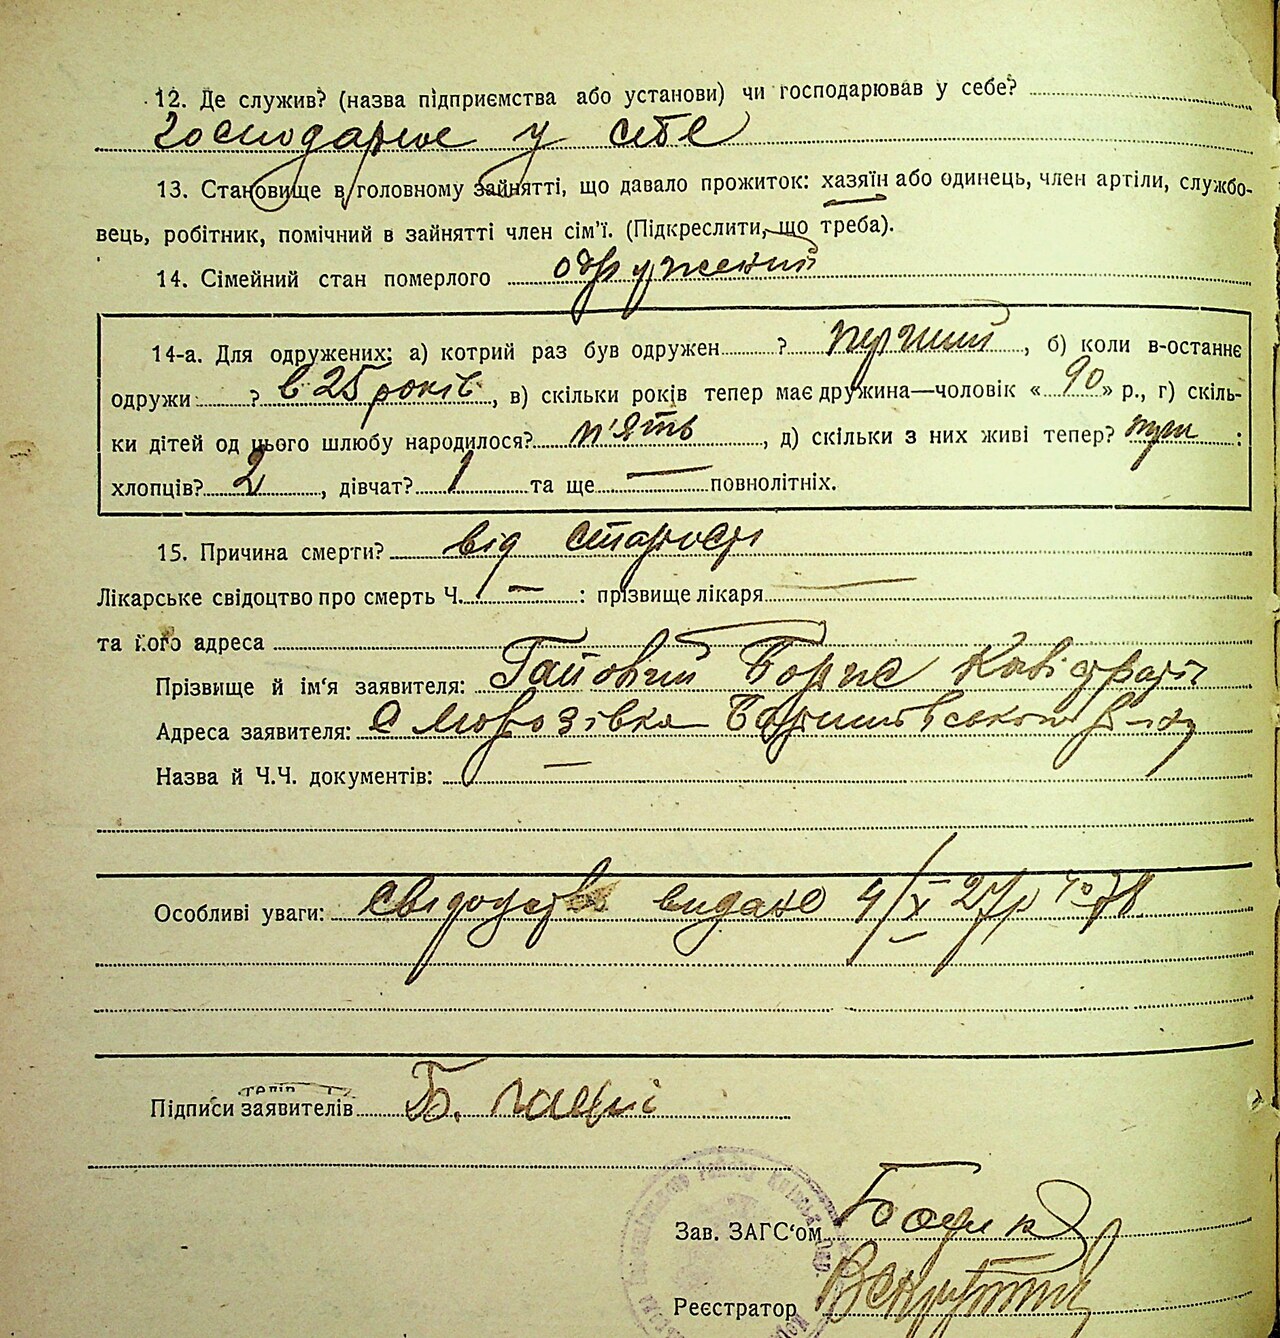 12. Де служив? (назва підприємства або установи) чи господарював у себе?
Господарює у себе
13. Становище в головному зайнятті, що давало прожиток: хазяїн або одинець, член артіли, службо-
вець, робітник, помічний в зайнятті член сім'ї. (Підкреслити, що треба).
14. Сімейний стан померлого одружений
14-а. Для одружених: а) котрий раз був одружен ? перший, б) коли в-останнє
одружи ? в 25 років, в) скільки років тепер має дружина—чоловік «90» р., г) скіль-
ки дітей од цього шлюбу народилося? п'ять, д) скільки з них живі тепер? три :
хлопців? 2, дівчат? 1 та ще — повнолітніх.
15. Причина смерти? від старости
Лікарське свідоцтво про смерть Ч. — : прізвище лікаря —
та його адреса
Прізвище й ім'я заявителя: Гайовий Борис
Адреса заявителя: с Морозівка Баришівського р-ну
Назва й Ч.Ч. документів: —
Особливі уваги: свідоцтво видано 4/X 27р 78
Підписи заявителів Б. Гайові
Зав. ЗАГС'ом
Реєстратор